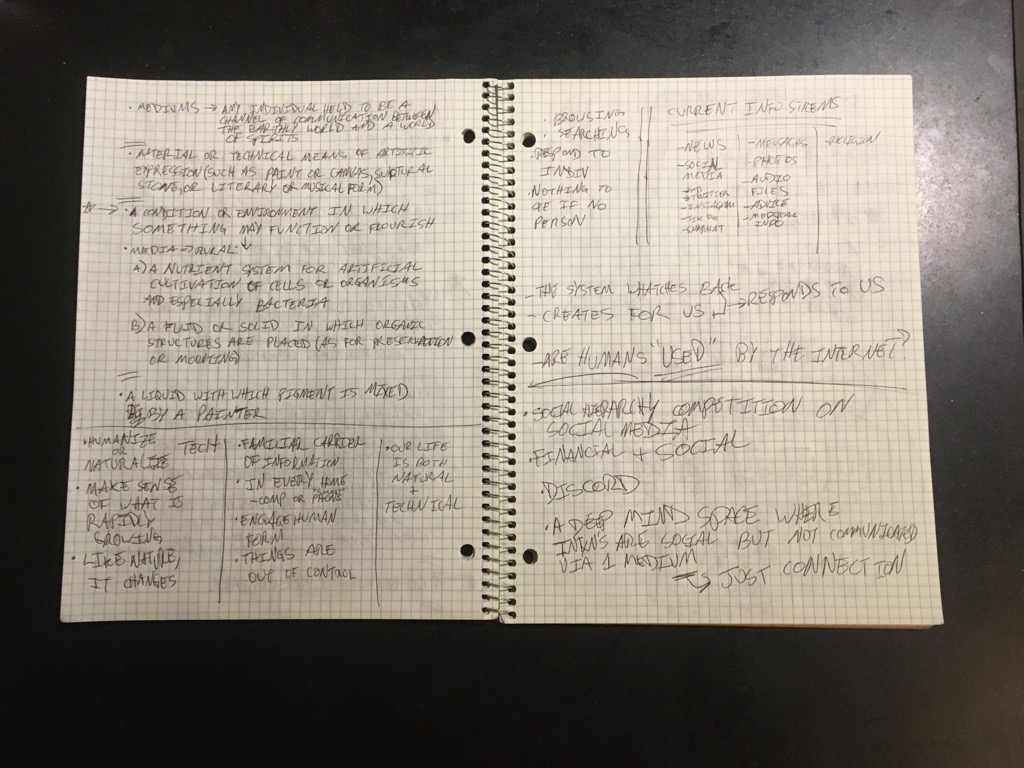 • MEDIUMS → ANY INDIVIDUAL HELD TO BE A
CHANNEL OF COMMUNICATION BETWEEN
THE EARTHLY WORLD AND A WORLD
OF SPIRITS
• MATERIAL OR TECHNICAL MEANS OF ARTISTIC
EXPRESSION (SUCH AS PAINT OR CANVAS, SCULPTURAL
STONE, OR LITERARY OR MUSICAL FORM)
☆→ • A CONDITION OR ENVIRONMENT IN WHICH
SOMETHING MAY FUNCTION OR FLOURISH
• MEDIA → PLURAL:
A) A NUTRIENT SYSTEM FOR ARTIFICIAL
CULTIVATION OF CELLS OR ORGANISMS
AND ESPECIALLY BACTERIA
B) A FLUID OR SOLID IN WHICH ORGANIC
STRUCTURES ARE PLACED (AS FOR PRESERVATION
OR MOUNTING)
• A LIQUID WITH WHICH PIGMENT IS MIXED
BY A PAINTER
• HUMANIZE TECH
OR
NATURALIZE
• MAKE SENSE
OF WHAT IS
RAPIDLY
GROWING
• LIKE NATURE,
IT CHANGES
• FAMILIAR CARRIER
OF INFORMATION
• IN EVERY HOME
- COMP OR PHONE
• ENGAGE HUMAN
FORM
• THINGS ARE
OUT OF CONTROL
• OUR LIFE
IS BOTH
NATURAL
+
TECHNICAL
• BROWSING
• SEARCHING
• RESPOND TO
INDIV
• NOTHING TO
SEE IF NO
PERSON
CURRENT INFO STREMS
- NEWS
- SOCIAL
MEDIA
- TWITTER
- INSTAGRAM
- TIKTOK
- SNAPCHAT
- MESSAGES
- PHOTOS
- AUDIO
FILES
- ADVICE
- MEDICAL
INFO
- RELIGION
- THE SYSTEM WHATCHES BACK
- CREATES FOR US → RESPONDS TO US
- ARE HUMANS "USED" BY THE INTERNET?
• SOCIAL HIERARCHY COMPETITION ON
SOCIAL MEDIA
• FINANCIAL + SOCIAL
• DISCORD
• A DEEP MIND SPACE WHERE
ARE SOCIAL BUT NOT COMMUNICATED
VIA 1 MEDIUM
→ JUST CONNECTION